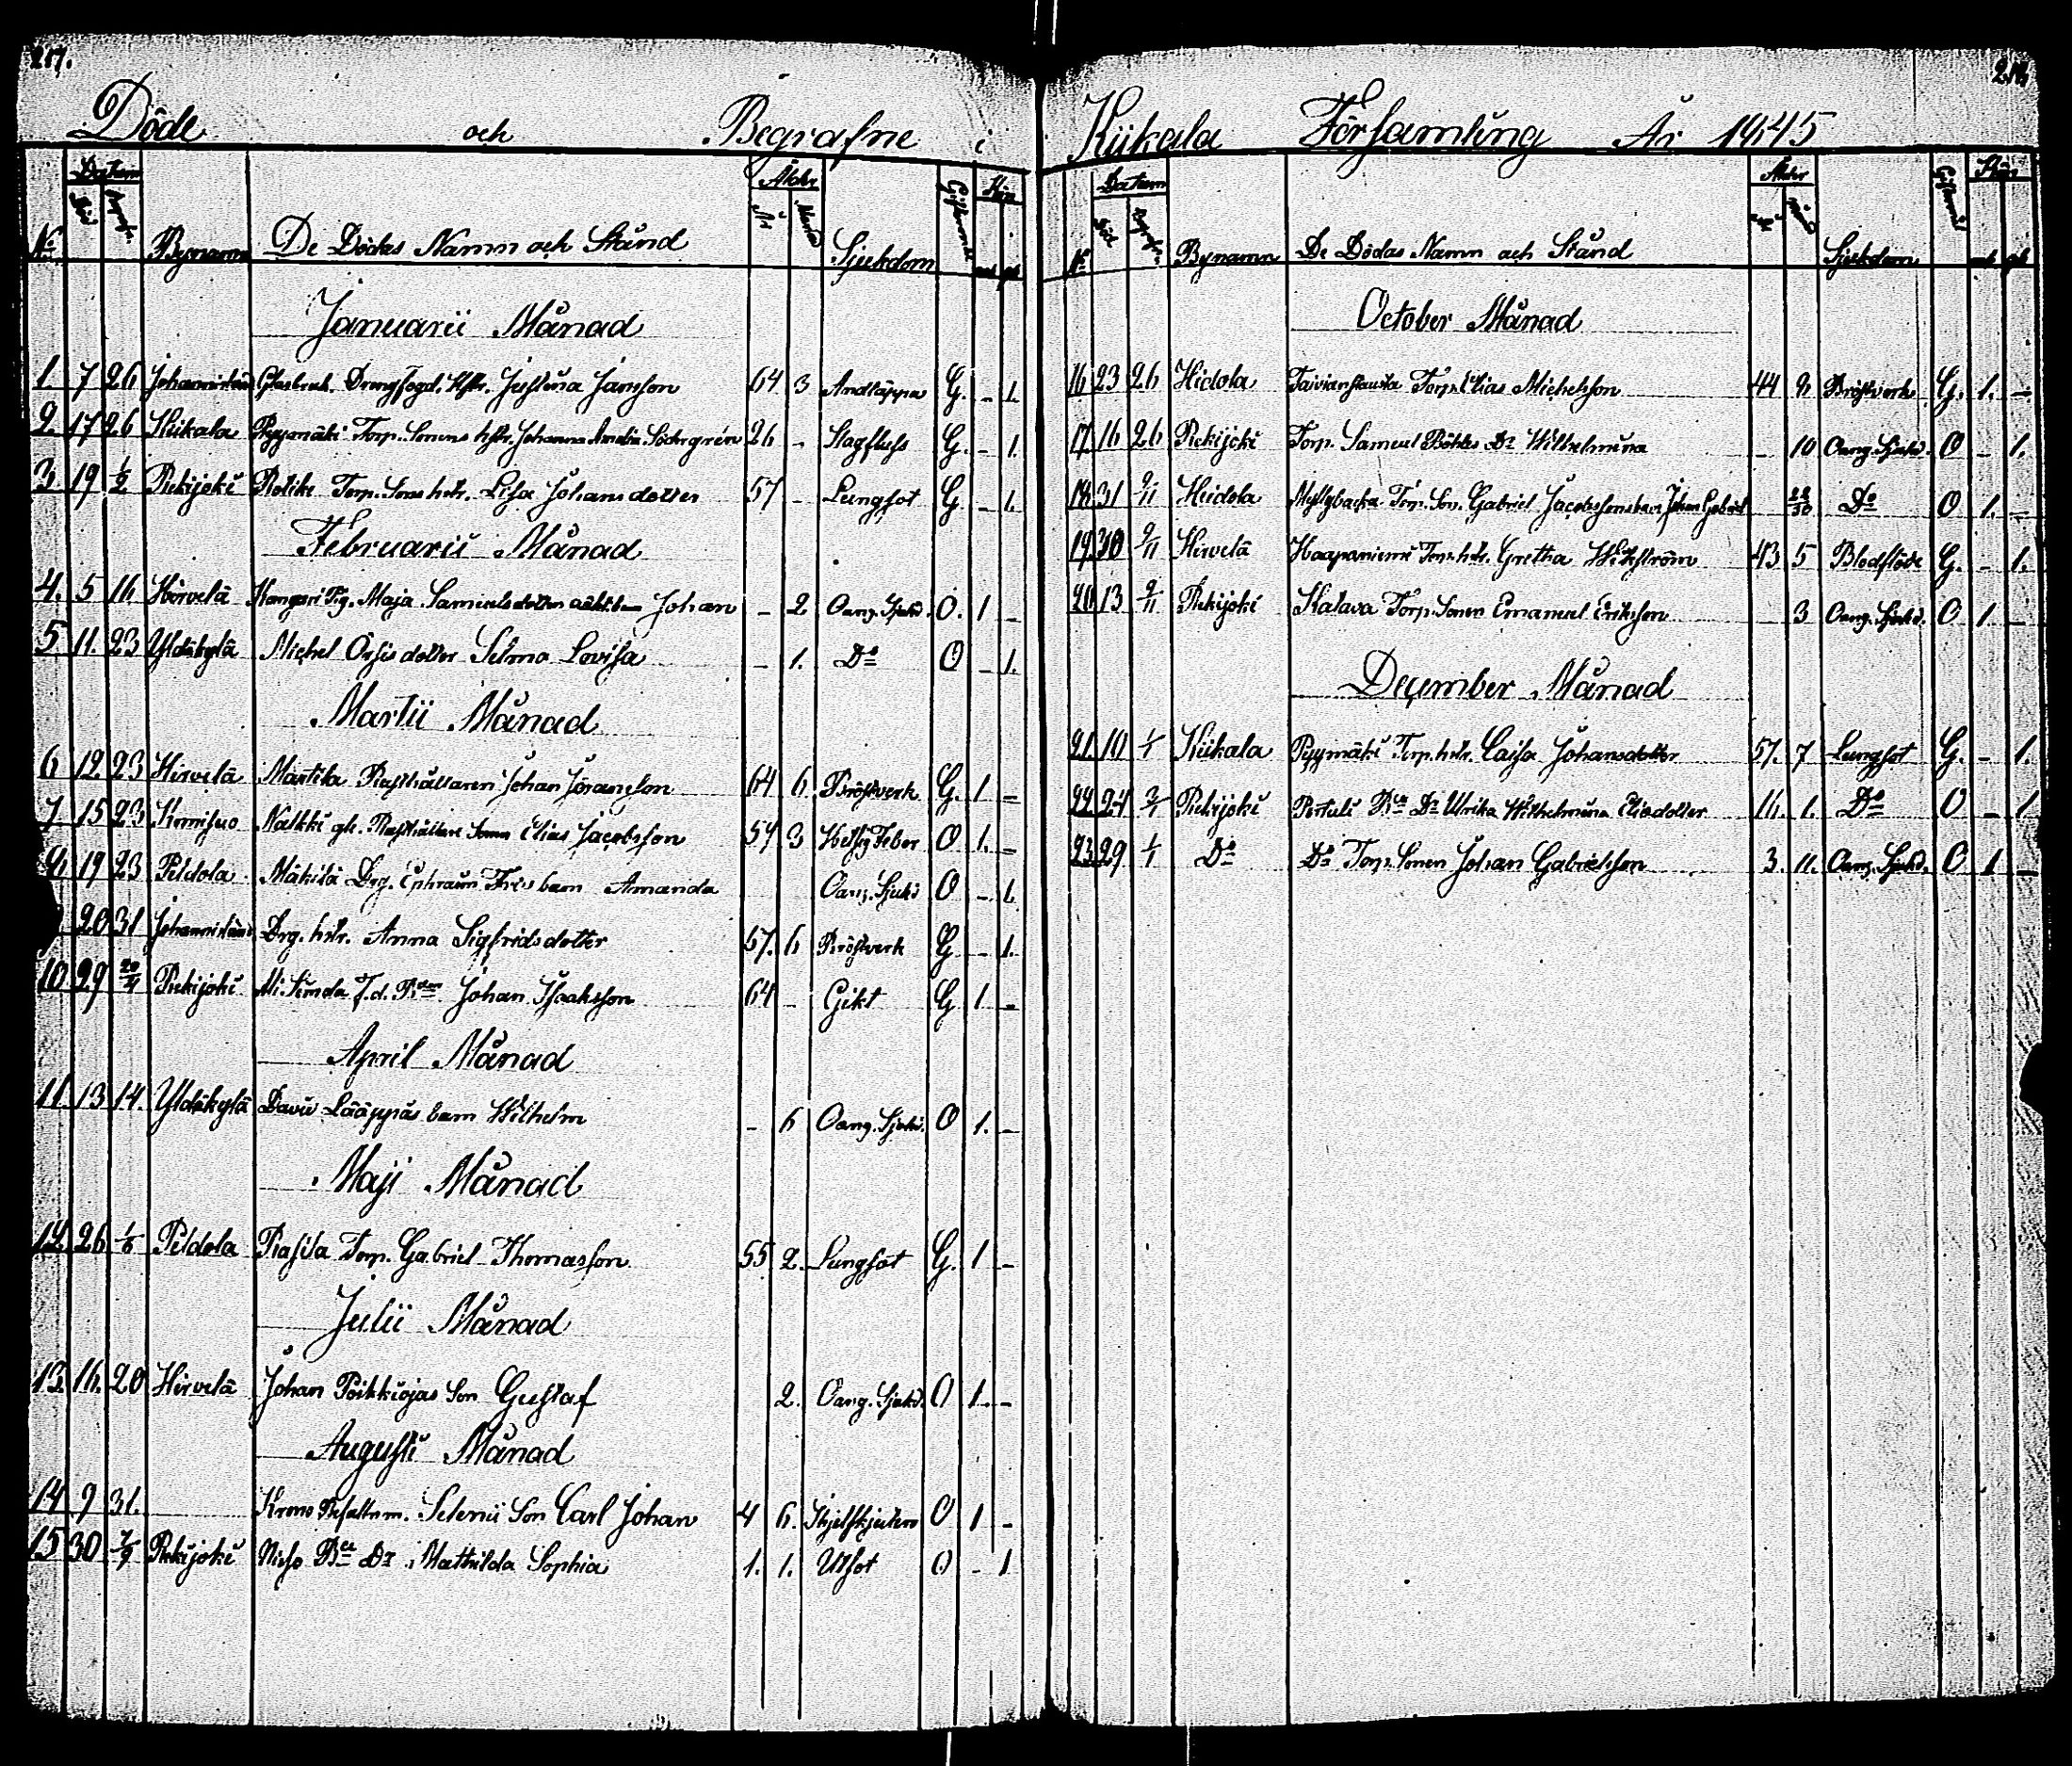 217.
Döde och Begrafne i
No Datum Bynamn De Dödas Namn och Stånd Ålder Sjukdom Kön
Död Begrafn. År Månad
Januarii Månad
1. 7 26 Johannislund Glasbruk. Drengfogd. Hstr. Justina Janson 64 3 Andtäppa G. - 1.
2. 17 26 Kiikala Pyymäki Torp. Sonens hstr. Johanna Amalia Södergrén 26 - Slagfluss G. - 1.
3. 19 1/2 Rekijoki Torp. Sons hstr. Lisa Johansdotter 57 - Lungsot G - 1.
Februarii Månad
4. 5 16 Hirvelä Kangari Pig. Maja Samuelsdotters Johan - 2 Oang. Sjukd. O. 1 -
5 11. 23 Yldäkylä Michel Orsis dotter Selma Lovisa - 1. Do O - 1.
Martii Månad
6 12 23 Hirvelä Marttila Rusthållaren Johan Göransson 64 6. Bröstverk G. 1 -
7 15 23 Komisuo Nälkki gl. Rusthållare Sonen Elias Jacobsson 54 3 Hetsig Feber O 1. -
8. 19 23 Peldola Mäkilä Drg. Ephraim Friis barn Amanda Oang. Sjukd O - 1.
20 31 Johannislund Drg. hstr. Anna Sigfridsdotter 67. 6 Bröstverk G - 1.
10 29 20/4 Rekijoki Ali Simola F.d. Bden Johan Isaksson 64 - Gikt G 1 -
April Månad
11. 13 14. Yldäkylä David Lääppäs barn Wilhelm - 6 Oang. Sjukd. O 1. -
Maji Månad
12. 26 1/6 Peldola Rasila Torp. Gabriel Thomasson 55 2. Lungsot G. 1 -
Julii Månad
13. 16. 20 Hirvelä Johan Poikkiojas Son Gustaf 2. Oang. Sjukd. O 1. -
Augusti Månad
14 9 31. Krono Befallnm. Selenii Son Carl Johan 4 6. O 1 -
15 30 7/9 Rekijoki Bde Dr Mathilda Sophia 1. 1. Utsot O - 1
218.
Kiikala Församling År 1845
No Datum Bynamn De Dödas Namn och Stånd Ålder Sjukdom Kön
October Månad
16 23 26 Hidola Torp. Elias Michelsson 44 8 Bröstverk G. 1. -
17. 16 26 Rekijoki Torp. Samuel Böhles Dr Wilhelmina - 10 Oang. Sjukd. O - 1.
18. 31 9/11 Hidola Myllybacka Torp. Son. Gabriel Jacobssons barn Johan Gabriel 22/30 Do O 1. -
19. 30 9/11 Hirvelä Haapaniemi Torp. hstr. Gretha Wikström 43 5 Blodflöde G. - 1.
20. 13 9/11 Rekijoki Kalava Torp. Sonen Emanuel Eriksson 3 Oang. Sjukd. O 1. -
December Månad
21. 10 1/1 Kiikala Pyymäki Torp. hstr. Caisa Johansdotter 57. 7 Lungsot G. - 1.
22. 24 3/1 Rekijoki Pertuli Bde Dr Ulrika Wilhelmina Eliedotter 16. 1. Do O - 1
23. 29 1/1 Do Do Torp. Sonen Johan Gabrielsson 3. 11. Oang. Sjukd. O 1 -